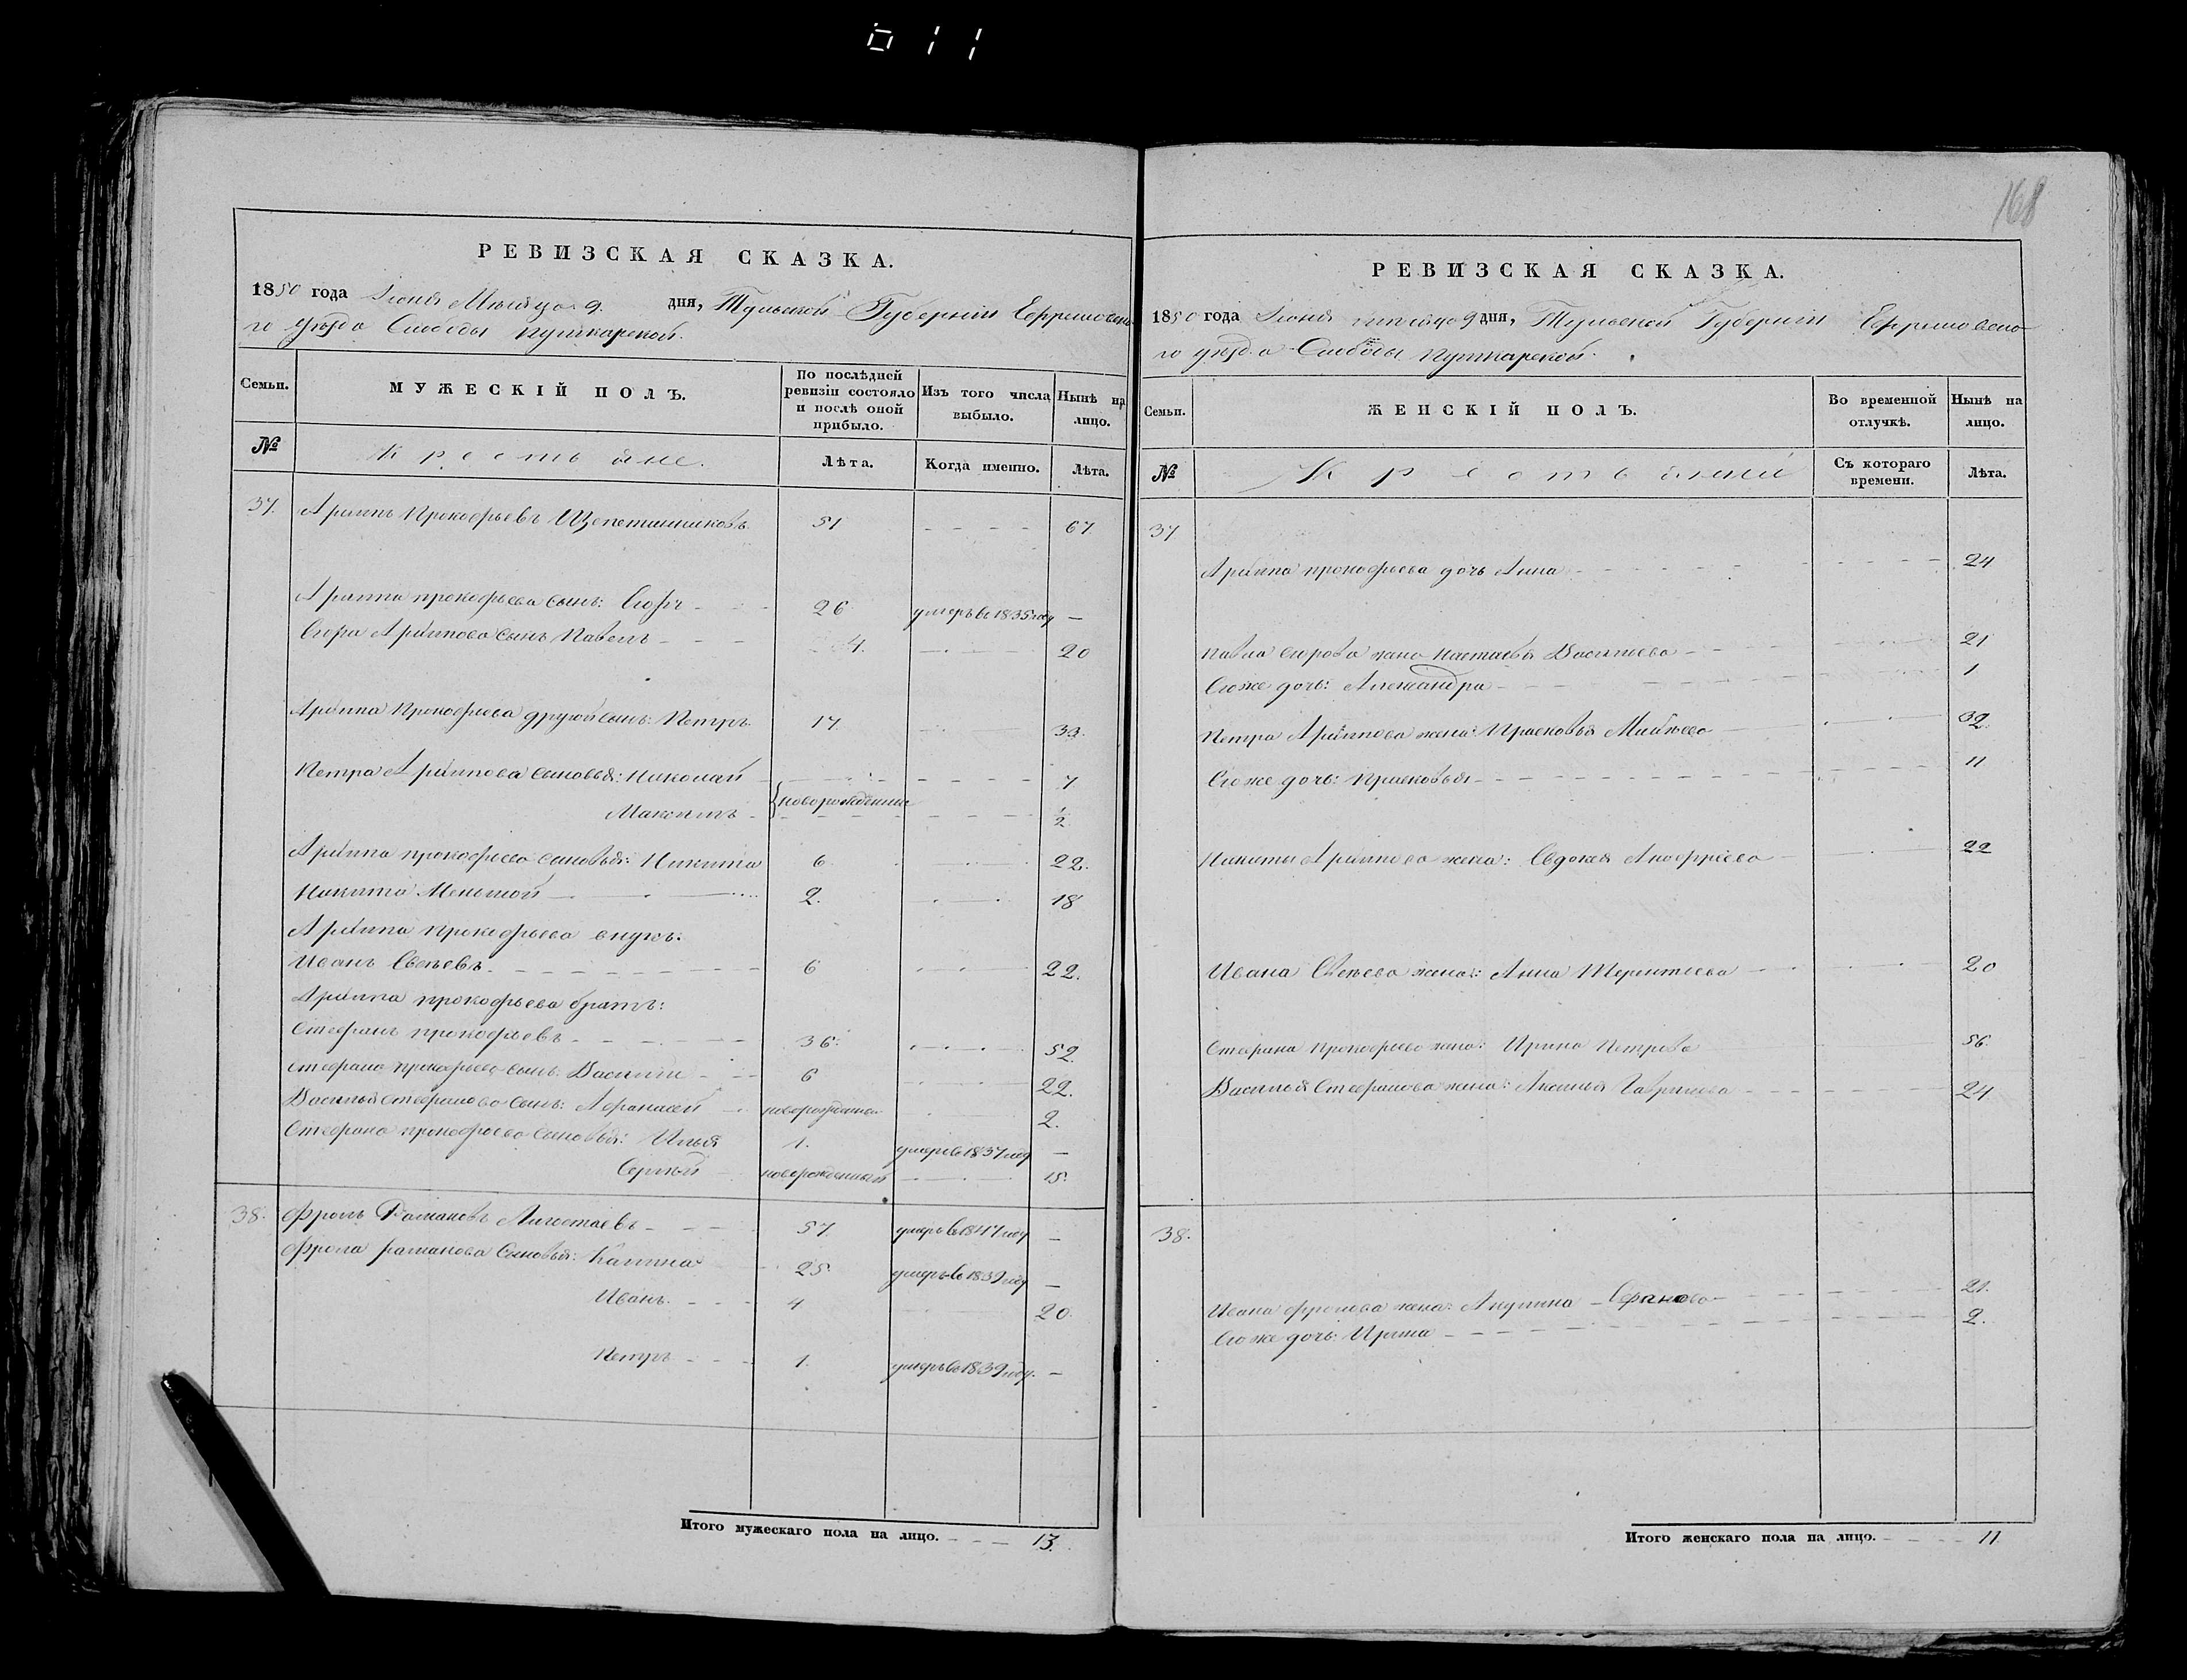 011
168
РЕВИЗСКАЯ СКАЗКА.
1850 года Іюня Мѣсяца 9 дня, Тульской Губерніи Ефремовска-
го уѣзда Слободы пушкарской.
Семьи. МУЖЕСКІЙ ПОЛЪ. По послѣдней ревизіи состояло и послѣ оной прибыло. Изъ того числа выбыло. Нынѣ на лицо.
№ Крестьяне. Лѣта. Когда именно. Лѣта.
37. Архипъ Прокофьевъ 51 - - - - 67.
Архипа прокофьева сынъ: Егоръ - 26 умеръ въ 1835 году —
Егора Архипова сынъ Павелъ - - - 4. 20
Архипа Прокофьева другой сынъ: Петръ 17. 33.
Петра Архипова сыновья: Николай - - - - 7
новорожденные
Максимъ - - - - 1/2
Архипа прокофьева сыновья: Никита 6. 22.
Никита Меньшой 2. 18
Архипа Прокофьева внукъ:
Иванъ 6 22.
Архипа прокофьева братъ:
Стефанъ прокофьевъ 36. 52.
Стефана прокофьева сынъ: Василій 6 22.
Василья Стефанова сынъ: Афанасей новорожденный 2.
Стефана прокофьева сыновья: Илья 1. умеръ въ 1837 году —
Сергѣй новорожденный 15.
38. Фролъ Романовъ 57. умеръ въ 1847 году —
Фрола романова Сыновья: Калина 25. умеръ въ 1839 году —
Иванъ. - - - 4 20.
Петръ - - - 1. умеръ въ 1839 году. —
Итого мужескаго пола на лицо. - - - 13.
РЕВИЗСКАЯ СКАЗКА.
1850 года Іюня мѣсяца 9 дня, Тульской Губерніи Ефремовска-
го уѣзда Слободы Пушкарской.
Семьи. ЖЕНСКІЙ ПОЛЪ. Во временной отлучкѣ. Нынѣ на лицо.
№ Съ котораго времени. Лѣта.
37
Архипа прокофьева дочь Анна 24
Павла Егорова жена Настасья Васильева 21
Егоже дочь: Александра 1
Петра Архипова жена: Прасковья 32.
Егоже дочь: Прасковья 11
Никиты Архипова жена: Евдокея 22
Ивана жена: Анна Терентьева 20
Стефана Прокофьева жена: Ирина Петрова 56.
Василья Стефанова жена: Аксинья Гаврилова 24
38.
Ивана фролова жена: Акулина 21.
Егоже дочь: Ирина 2.
Итого женскаго пола на лицо. - - - 11